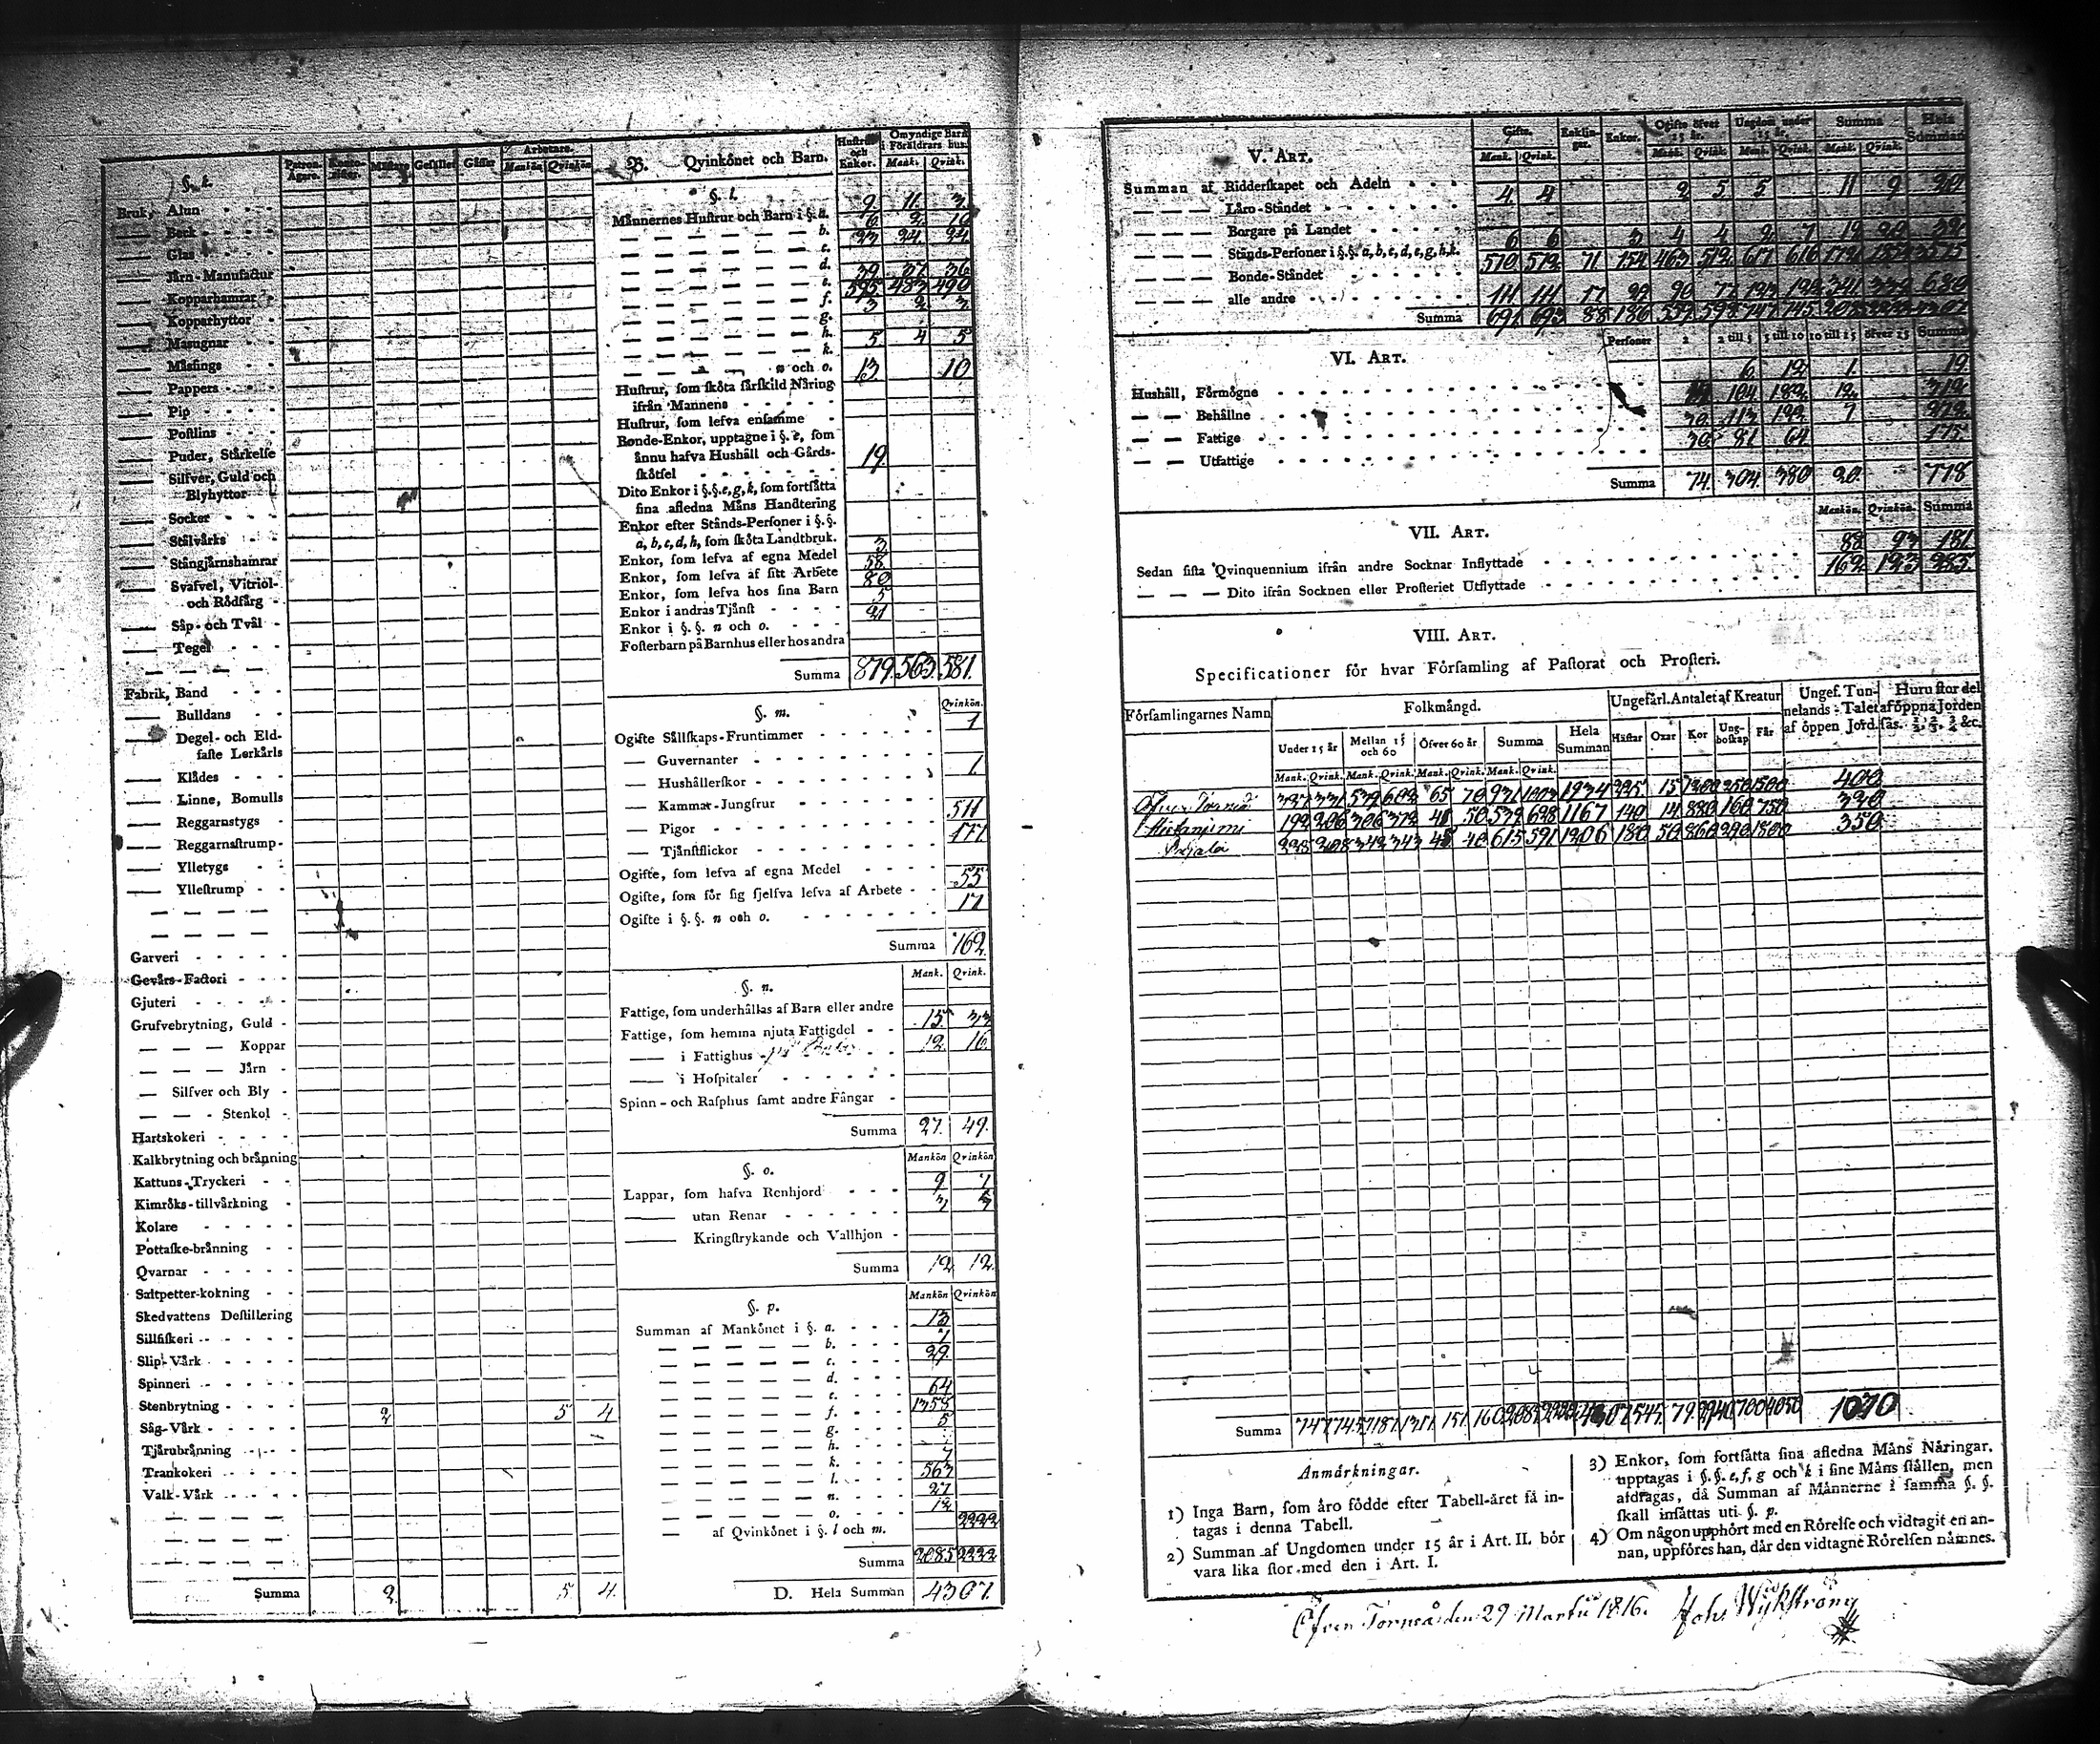 §. k.
Patron. Ägare.
Arbetare.
Mankön Qvinkön
Bruk, Alun
Beck
Glas
Järn-Manufactur
Kopparhamrar
Kopparhyttor
Masugnar
Mässings
Pappers
Pip
Postlins
Puder, Stärkelse
Silfver, Guld och
Blyhyttor
Socker
Stålvärks
Stångjärnshamrar
Svafvel, Vitriol-
och Rödfärg
Såp- och Tvål
Tegel
Fabrik, Band
Bulldans
Degel- och Eld-
faste Lerkärls
Klädes
Linne, Bomulls
Reggarnstygs
Reggarnsstrump
Ylletygs
Yllestrump
Garveri
Gevärs-Factori
Gjuteri
Grufvebrytning, Guld
Koppar
Järn
Silfver och Bly
Stenkol
Hartskokeri
Kalkbrytning och bränning
Kattuns-Tryckeri
Kimröks-tillvärkning
Kolare
Pottaske-bränning
Qvarnar
Saltpetter-kokning
Skedvattens Destillering
Sillfiskeri
Slip-Värk
Spinneri
Stenbrytning
Såg-Värk 2 5 4
Tjärubränning
Trankokeri
Valk-Värk
Summa 2. 5 4.
B. Qvinkönet och Barn.
Hustrur och Enkor.
Omyndige Barn i Föräldrars hus.
Mank. Qvink.
§. l.
Männernes Hustrur och Barn i §. a. 9 11. 3.
b.
c. 23 24. 24.
d.
e. 595 483 490
f. 3 2 3
g.
h. 5 4 5
k.
n och o. 13. 10
Hustrur, som sköta särskild Näring
ifrån Mannens
Hustrur, som lefva ensamme
Bonde-Enkor, upptagne i §. e, som
ännu hafva Hushåll och Gårds-
skötsel 19.
Dito Enkor i §.§. e, g, k, som fortsätta
sina afledna Mäns Handtering
Enkor efter Stånds-Personer i §.§.
a, b, c, d, h, som sköta Landtbruk. 3
Enkor, som lefva af egna Medel 58.
Enkor, som lefva af sitt Arbete 80
Enkor, som lefva hos sina Barn 5
Enkor i andras Tjänst 21
Enkor i §.§. n och o.
Fosterbarn på Barnhus eller hos andra
Summa 879. 563. 581.
§. m. Qvinkön.
Ogifte Sällskaps-Fruntimmer 1
Guvernanter
Hushållerskor 1.
Kammar-Jungfrur
Pigor 511
Tjänstflickor 177.
Ogifte, som lefva af egna Medel
Ogifte, som för sig sjelfva lefva af Arbete 55
Ogifte i §.§. n och o. 17
Summa 762.
Mank. Qvink.
§. n.
Fattige, som underhållas af Barn eller andre
Fattige, som hemma njuta Fattigdel 15. 33
i Fattighus 12. 16.
i Hospitaler
Spinn- och Rasphus samt andre Fångar
Summa 27. 49.
Mankön Qvinkön
§. o.
Lappar, som hafva Renhjord 9 7
utan Renar 3 5
Kringstrykande och Vallhjon
Summa 12 12.
Mankön Qvinkön
§. p.
Summan af Mankönet i §. a. 13
b. 7
c. 29
d.
e. 64
f. 1358
g. 5
h.
k. 7
l. 563
n. 27
o. 12
af Qvinkönet i §. l och m. 2222
Summa 2085 2222
D. Hela Summan 4307.
V. Art.
Gifte. Enklingar. Enkor. Ogifte öfver 15 år. Ungdom under 15 år. Summa Hela Summan
Mank. Qvink. Mank. Qvink. Mank. Qvink. Mank. Qvink.
Summan af Ridderskapet och Adeln
Läro-Ståndet 4. 4 2 5 5 11 9 20
Borgare på Landet
Stånds-Personer i §.§. a, b, c, d, e, g, h, k. 6 6 3 4 4 2 7
Bonde-Ståndet 570 572 71 154 463 512 617 616
alle andre 111 111 17 29 90 77 680
Summa 691 693 88 186 559 598 747 745
VI. Art.
Personer 2 2 till 5 5 till 10 10 till 15 öfver 15 Summa
Hushåll, Förmögne 6 12 1. 19.
Behållne 104 182 12. 312
Fattige 30. 113 122 7 272.
Utfattige 30. 81 64 175.
Summa 74. 304. 380 20. 778
VII. Art.
Mankön. Qvinkön. Summa
Sedan sista Qvinquennium ifrån andre Socknar Inflyttade 88 93 181.
Dito ifrån Socknen eller Prosteriet Utflyttade 162 123 285.
VIII. Art.
Specificationer för hvar Församling af Pastorat och Prosteri.
Församlingarnes Namn Folkmängd. Ungefärl. Antalet af Kreatur Ungef. Tunnelands-Talet af öppen Jord. Huru stor del af öppna Jorden sås. ½, ⅔, ¾ &c.
Under 15 år Mellan 15 och 60 Öfver 60 år Summa Hela Summan Hästar Oxar Kor Ungboskap Får
Mank. Qvink. Mank. Qvink. Mank. Qvink. Mank. Qvink.
Öfver Torneå 327 331 539 602 65 70 931 1003 1934 225 15 1200 250 1500 400
Hietaniemi 192 206 306 372 41 50 539 628 1167 140 14 880 160 750 320
Pajala 228 208 342 343 45 40 615 591 1206 180 50 860 290 1800 350
Summa 747 745 1187 1317 151 160 2085 2222 4307 545 79 2940 700 4050 1070
Anmärkningar.
1) Inga Barn, som äro födde efter Tabell-året få in-
tagas i denna Tabell.
2) Summan af Ungdomen under 15 år i Art. II. bör
vara lika stor med den i Art. I.
3) Enkor, som fortsätta sina afledna Mäns Näringar,
upptagas i §.§. e, f, g och k i sine Mäns ställen, men
afdragas, då Summan af Männerne i samma §. §.
skall insättas uti §. p.
4) Om någon upphört med en Rörelse och vidtagit en an-
nan, uppföres han, där den vidtagne Rörelsen nämnes.
Öfver Torneå den 29 Martii 1816. Joh. Wijkström